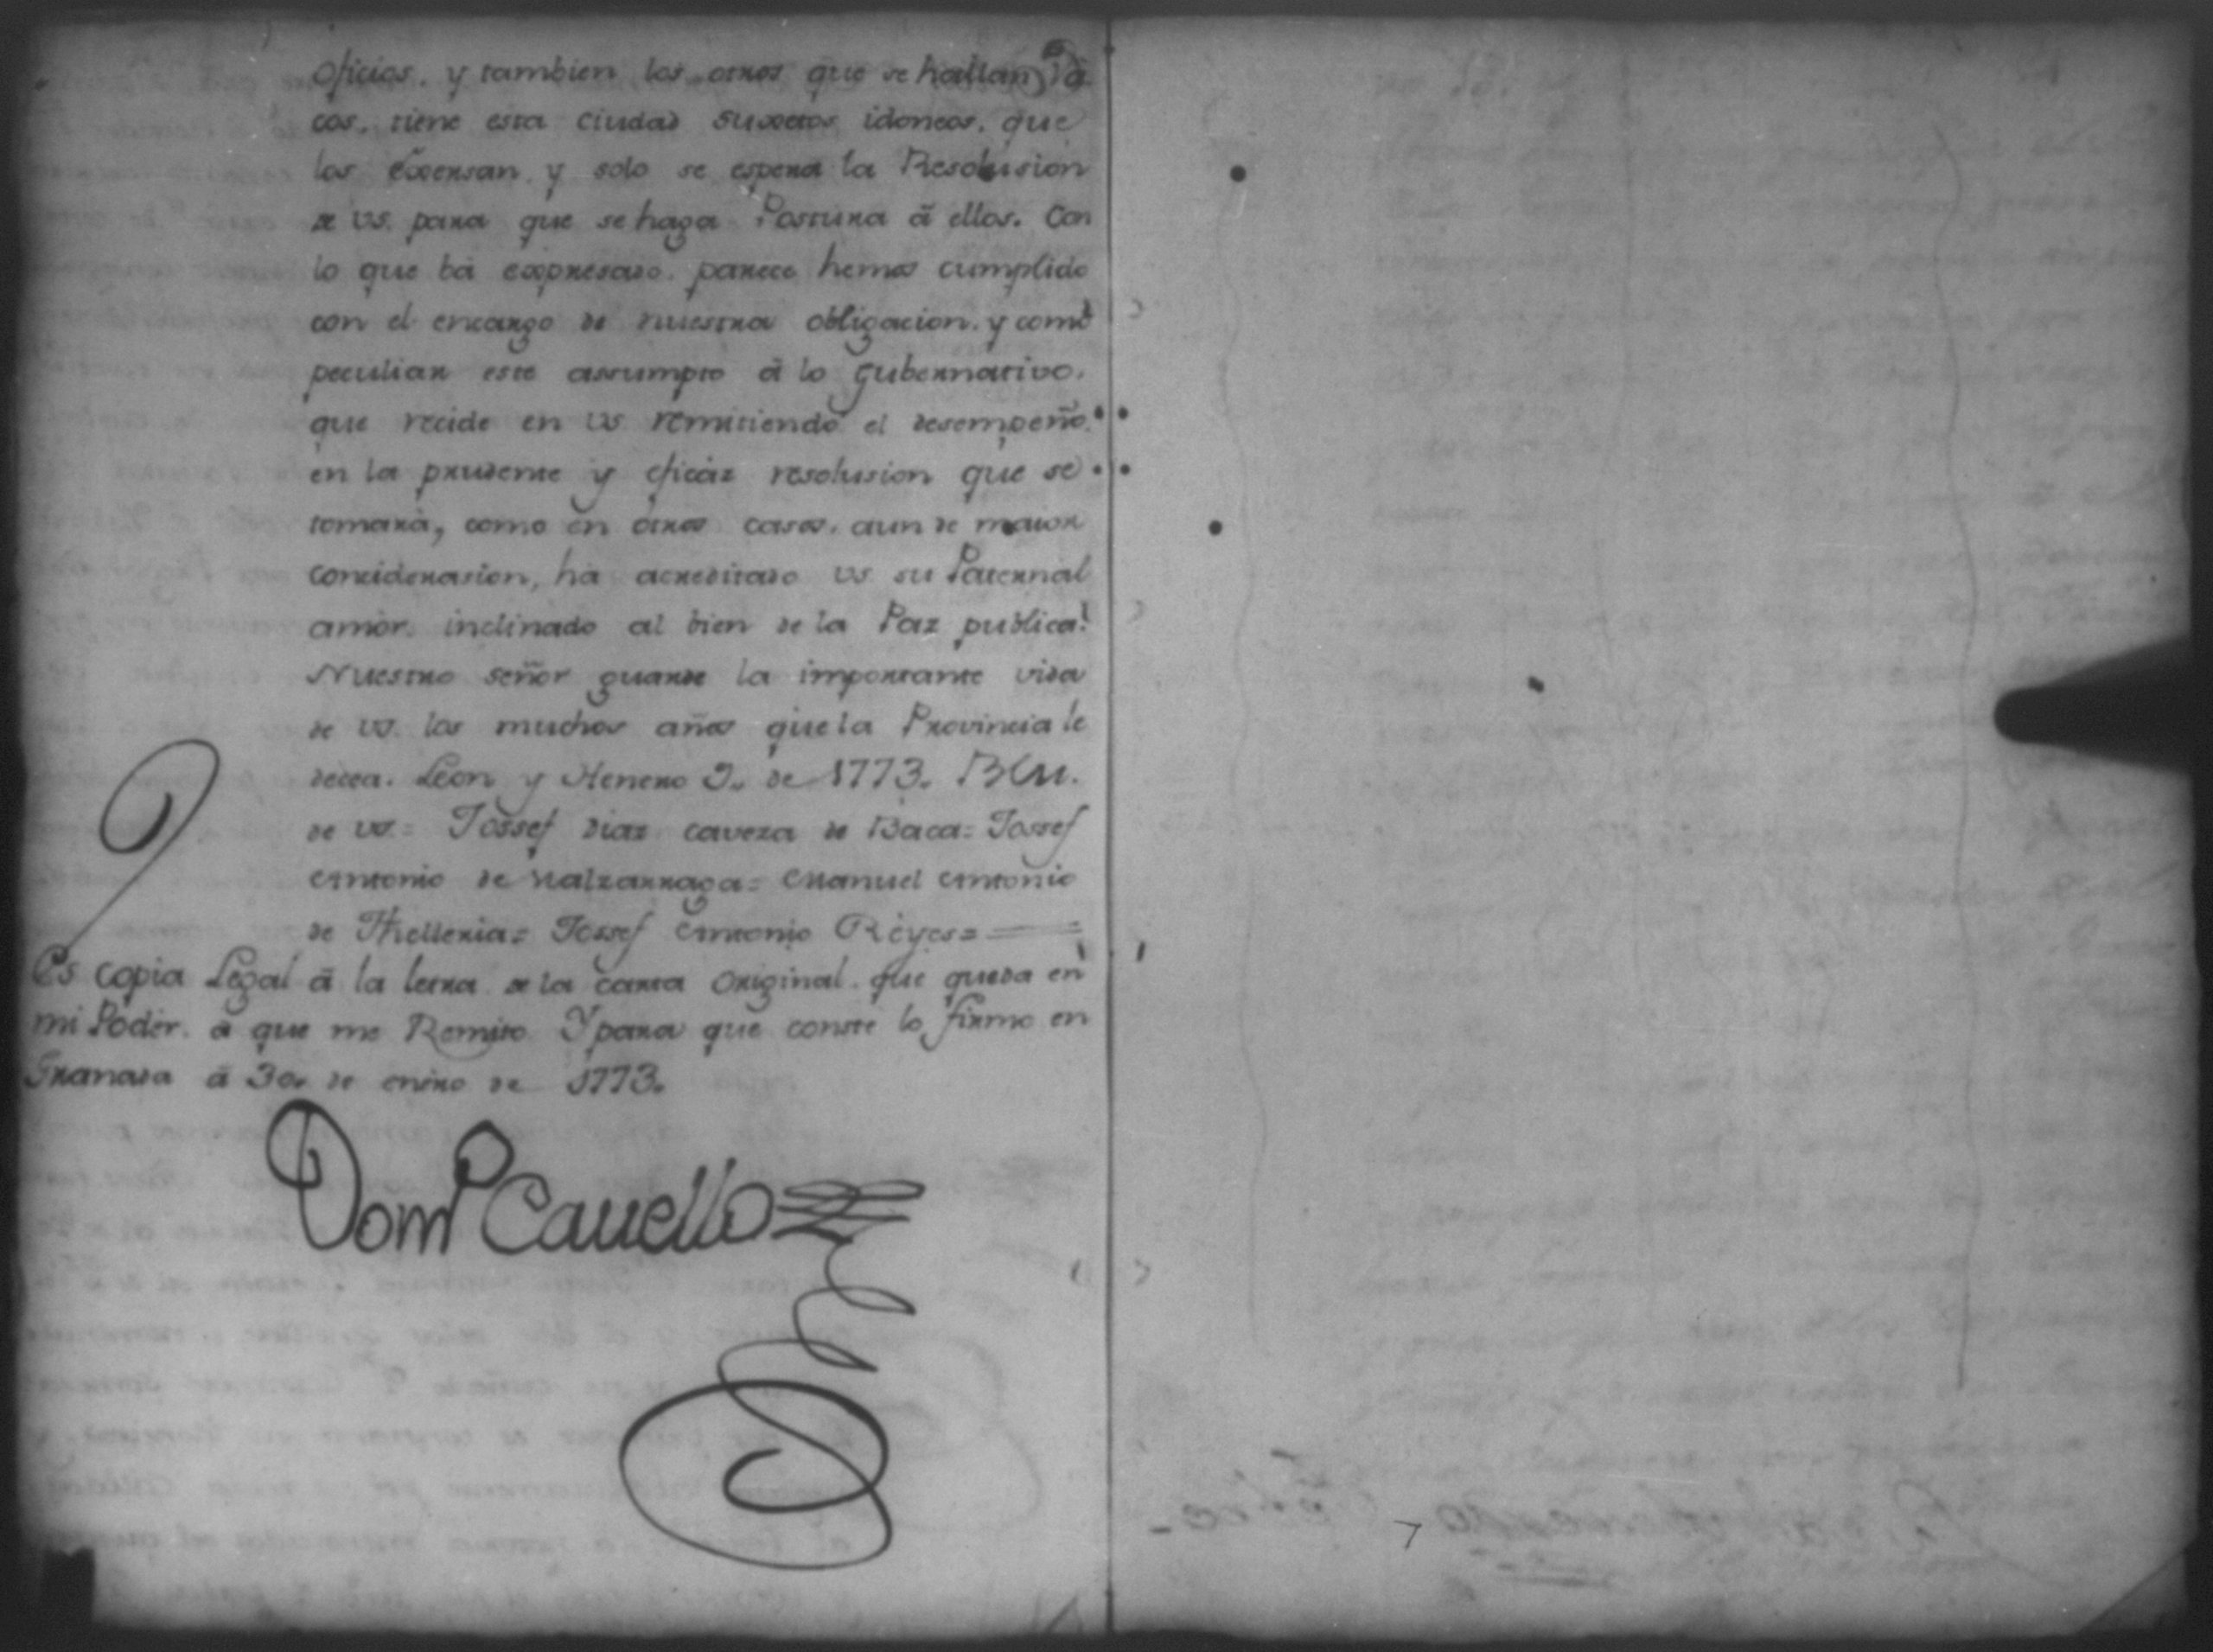 oficios. y tambien los otros que se hallan Va
cos. tiene esta Ciudad suxetos idoneos. que
los exersan. y solo se espera la Resolusion
de vs. para que se haga Postura á ellos. Con
lo que bá expresado. parece hemos cumplido
con el encargo de nuestra obligacion. y como
peculiar este assumpto á lo gubernativo.
que recide en vs remitiendo el desempeño.
en la prudente y eficáz resolusion que se
tomará, como en otros casos. aun de maior
conciderasion, há acreditado vs. su Paternal
amor. inclinado al bien de la Paz publica.
Nuestro señor guarde la importante vida
de vs. los muchos años que la Provincia le
decea. Leon y Henero 9. de 1773. BLM.
de vs.= Jossef Diaz caveza de Baca= Jossef
Antonio de Nalzarraga= Manuel Antonio
de Thelleria= Jossef Antonio Reyes=
Es copia Legal á la letra de la carta Original. que queda en
mi Poder. á que me Remito Y para que conste lo firmo en
Granada á 30. de enero de 1773.
Domº Cauello